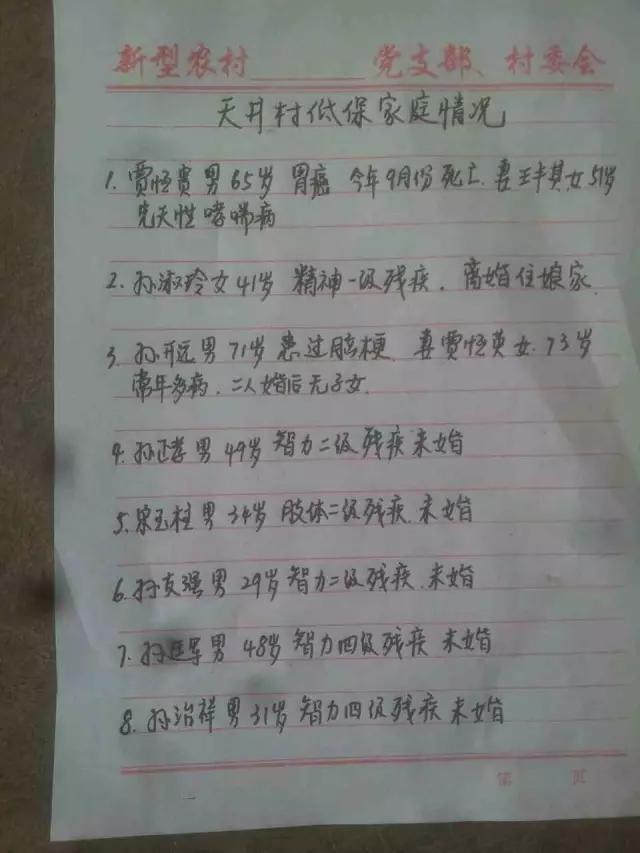 新型农村______党支部、村委会
天井村低保家庭情况
1. 贾恒贵 男 65岁 胃癌 今年9月份死亡. 妻王丰其,女 51岁
先天性哮喘病
2. 孙淑玲 女 41岁 精神一级残疾. 离婚住娘家.
3. 孙开远 男 71岁 患过脑梗. 妻贾恒英 女. 73岁
常年多病. 二人婚后无子女.
4. 孙 男 49岁 智力二级残疾 未婚
5. 宋玉柱 男 34岁 肢体二级残疾. 未婚
6. 孙友强 男 29岁 智力二级残疾. 未婚
7. 孙 男 48岁 智力四级残疾 未婚
8. 孙治祥 男 31岁 智力四级残疾 未婚
第 页